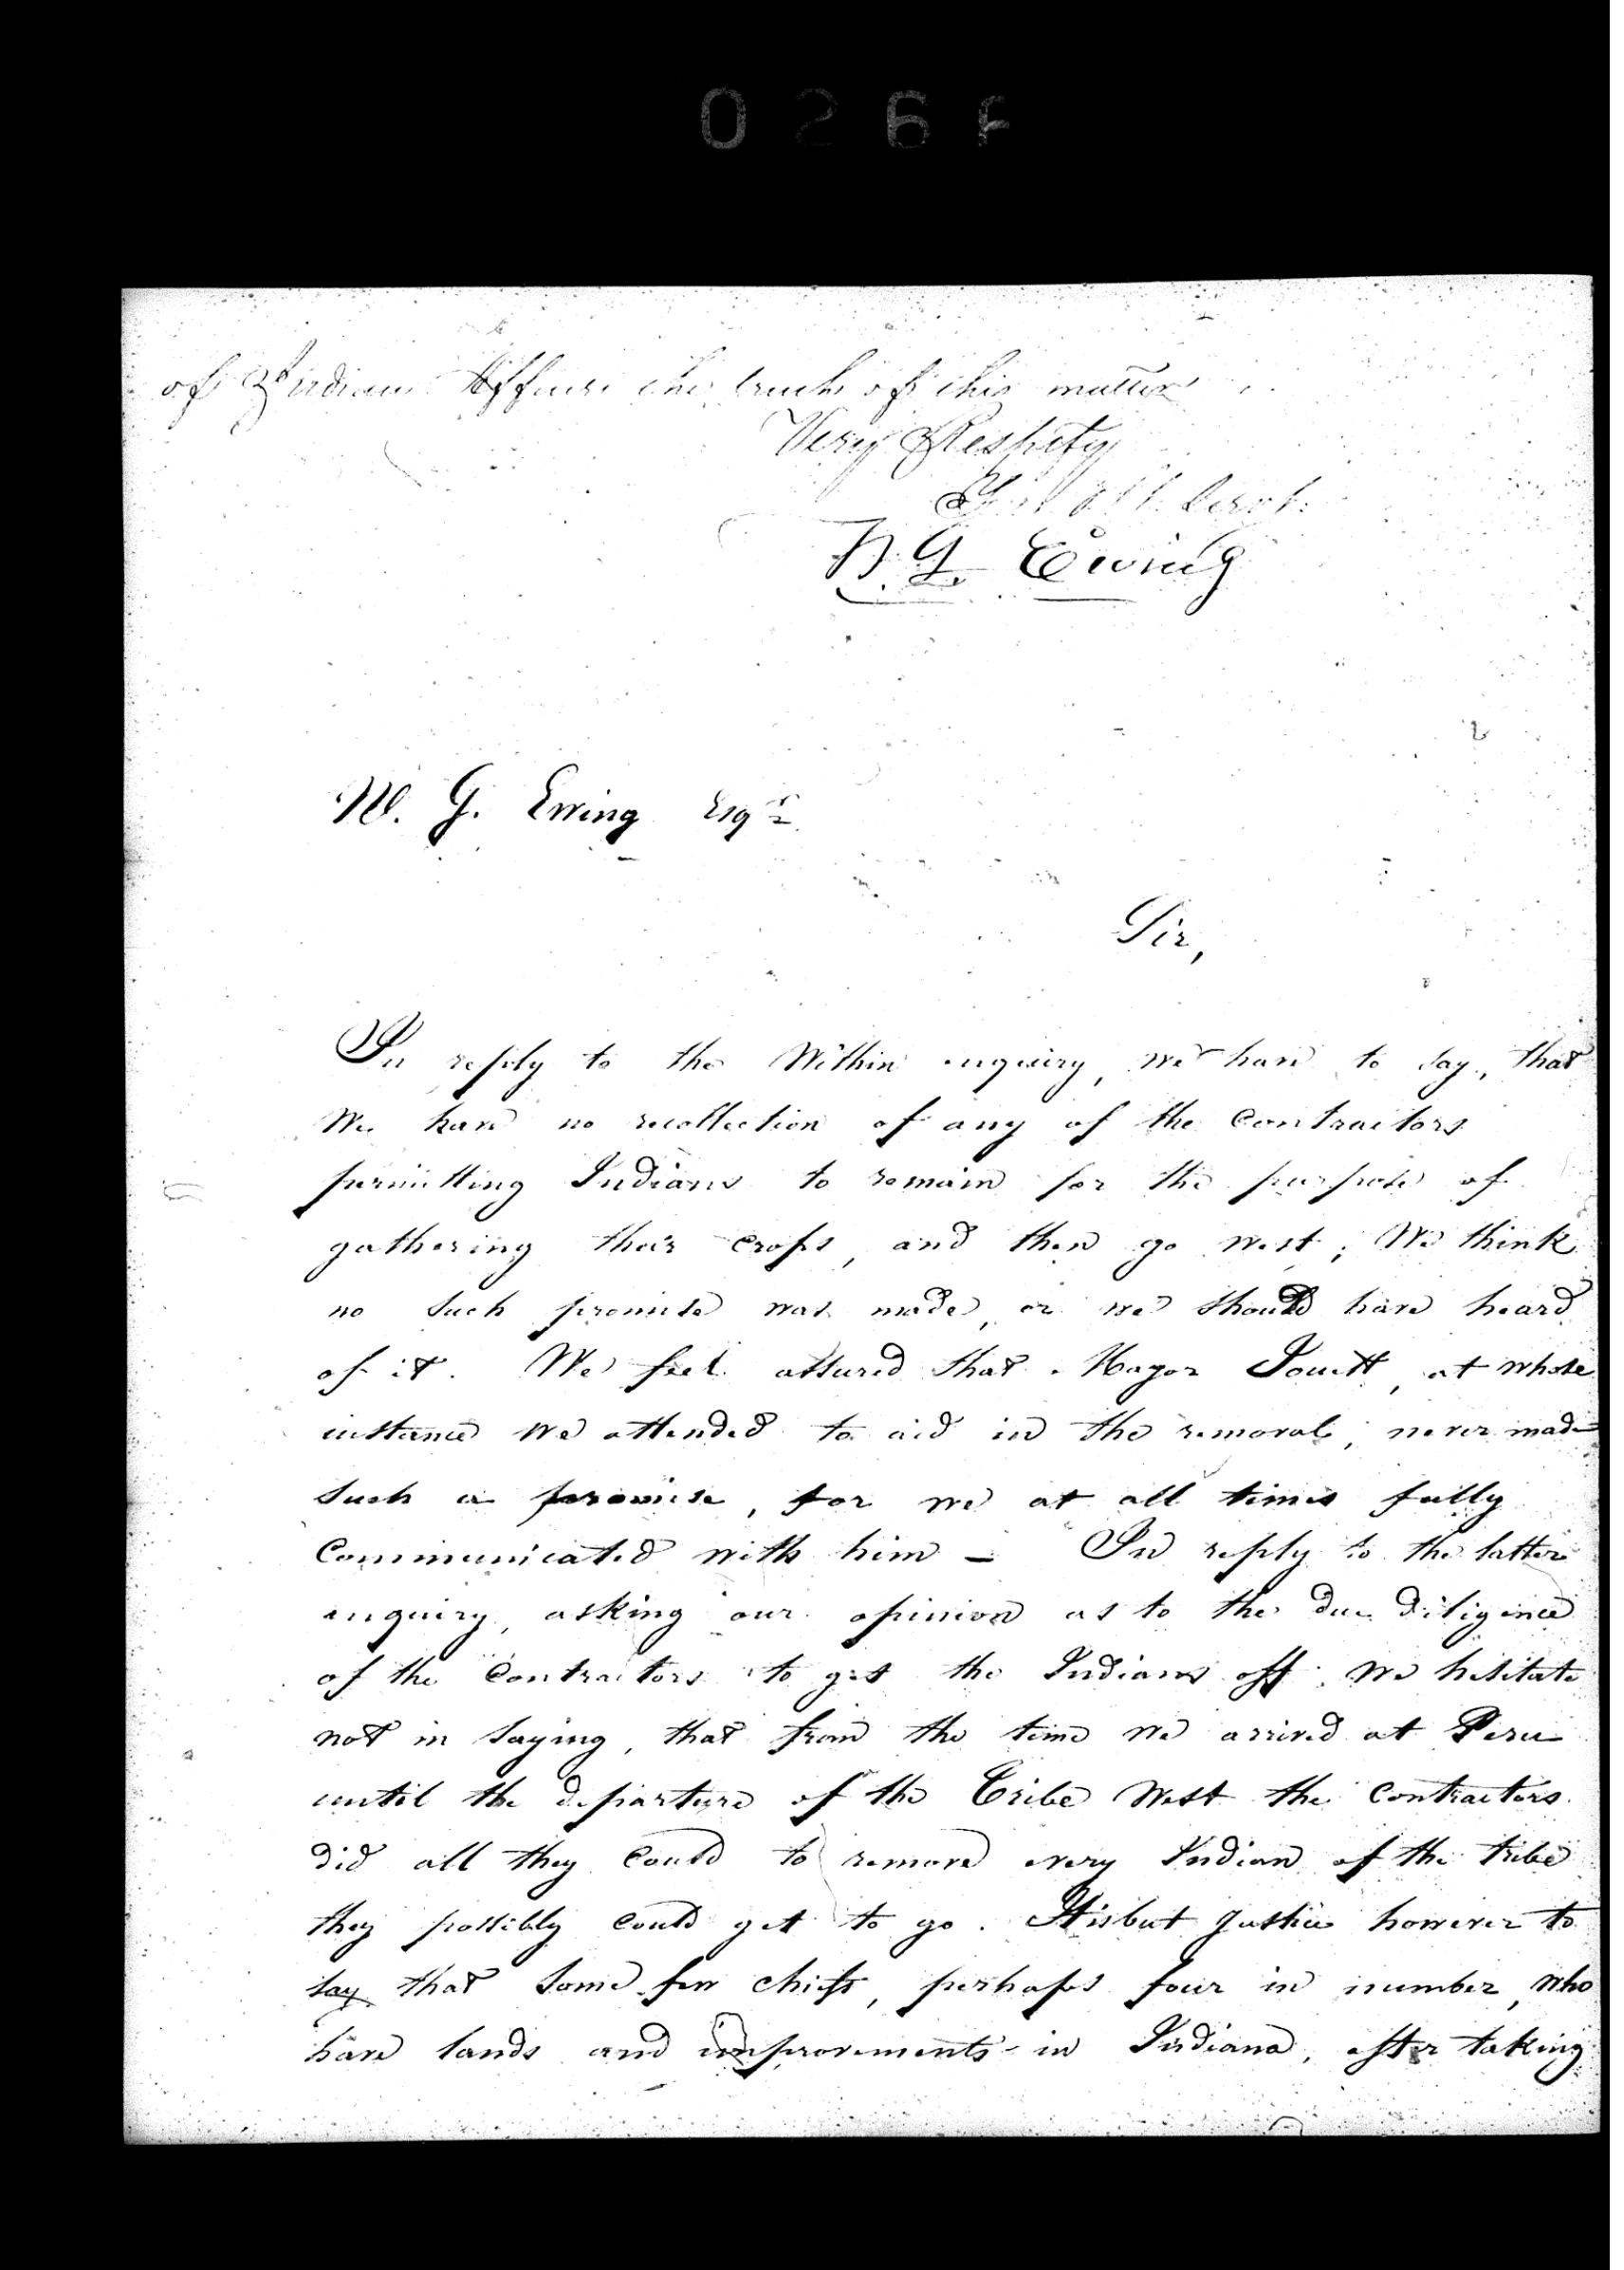 of Indian Affairs the truth of this matter
Very Respfty
Yr Obt Servt.
W. G. Ewing
W. G. Ewing Esqr
Sir,
In reply to the Within enquiry, we have to say, that
We have no recollection of any of the Contractors
permitting Indians to remain for the purpose of
gathering their Crops, and then go west; We think
no such promise was made, or we should have heard
of it. We feel assured that Major Jouett, at whose
instance we attended to aid in the removal, never made
such a promise, for we at all times fully
Communicated with him — In reply to the latter
enquiry, asking our opinion as to the due diligence
of the Contractors to get the Indians off, we hesitate
not in saying, that from the time we arrived at Peru
until the departure of the Tribe West the Contractors
did all they Could to remove every Indian of the tribe
they possibly Could get to go. It is but Justice however to
say that some few chiefs, perhaps four in number, who
have lands and improvements in Indiana, after taking